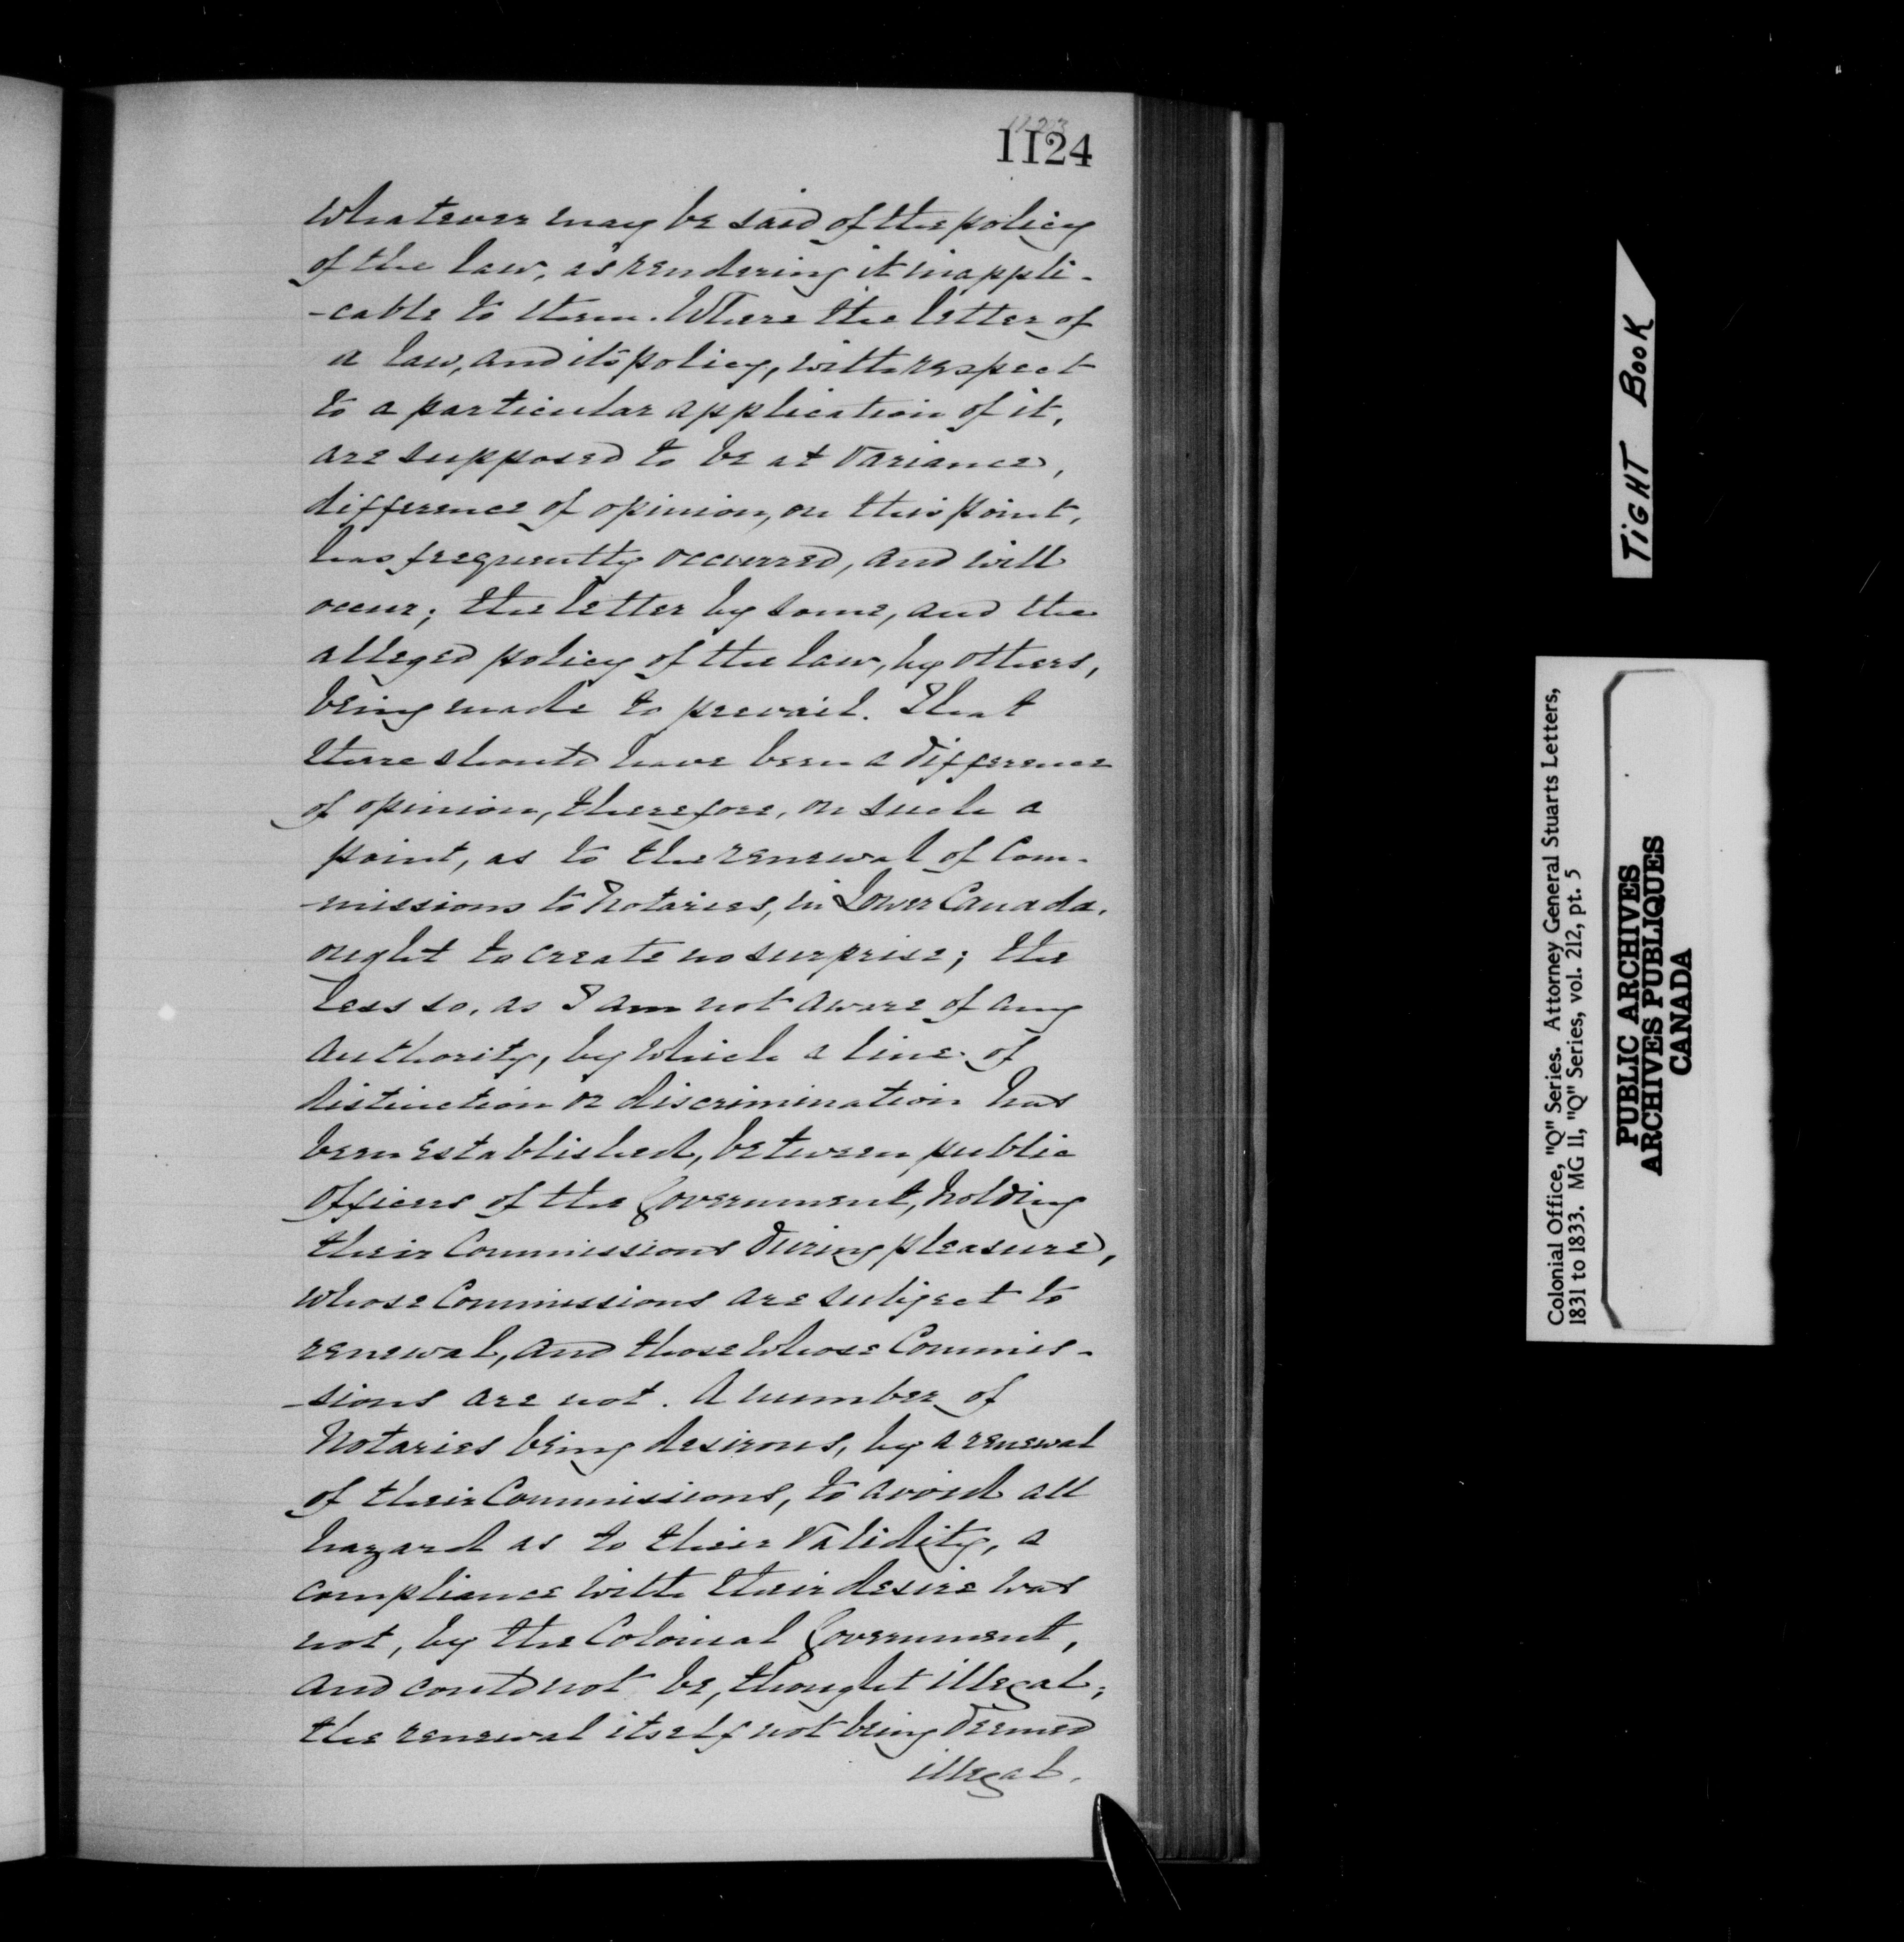 1123
1124
whatever may be said of the policy
of the law, as rendering it inappli-
-cable to them. Where the letter of
a law, and its policy, with respect
to a particular application of it,
are supposed to be at variance,
difference of opinion, on this point,
has frequently occurred, and will
occur; the letter by some, and the
alleged policy of the law, by others,
being made to prevail. That
there should have been a difference
of opinion, therefore, on such a
point, as to the renewal of Com-
-missions to Notaries, in Lower Canada,
ought to create no surprise; the
less so, as I am not aware of any
authority, by which a line of
distinction or discrimination has
been established, between public
officers of the Government, holding
their Commissions during pleasure,
whose Commissions are subject to
renewal, and those whose Commis-
-sions are not. A number of
Notaries being desirous, by a renewal
of their Commissions, to avoid all
hazard as to their validity, a
compliance with their desire was
not, by the Colonial Government,
and could not be, thought illegal;
the renewal itself not being deemed
illegal.
TIGHT BOOK
Colonial Office, "Q" Series. Attorney General Stuarts Letters,
1831 to 1833. MG 11, "Q" Series, vol. 212, pt. 5
PUBLIC ARCHIVES
ARCHIVES PUBLIQUES
CANADA